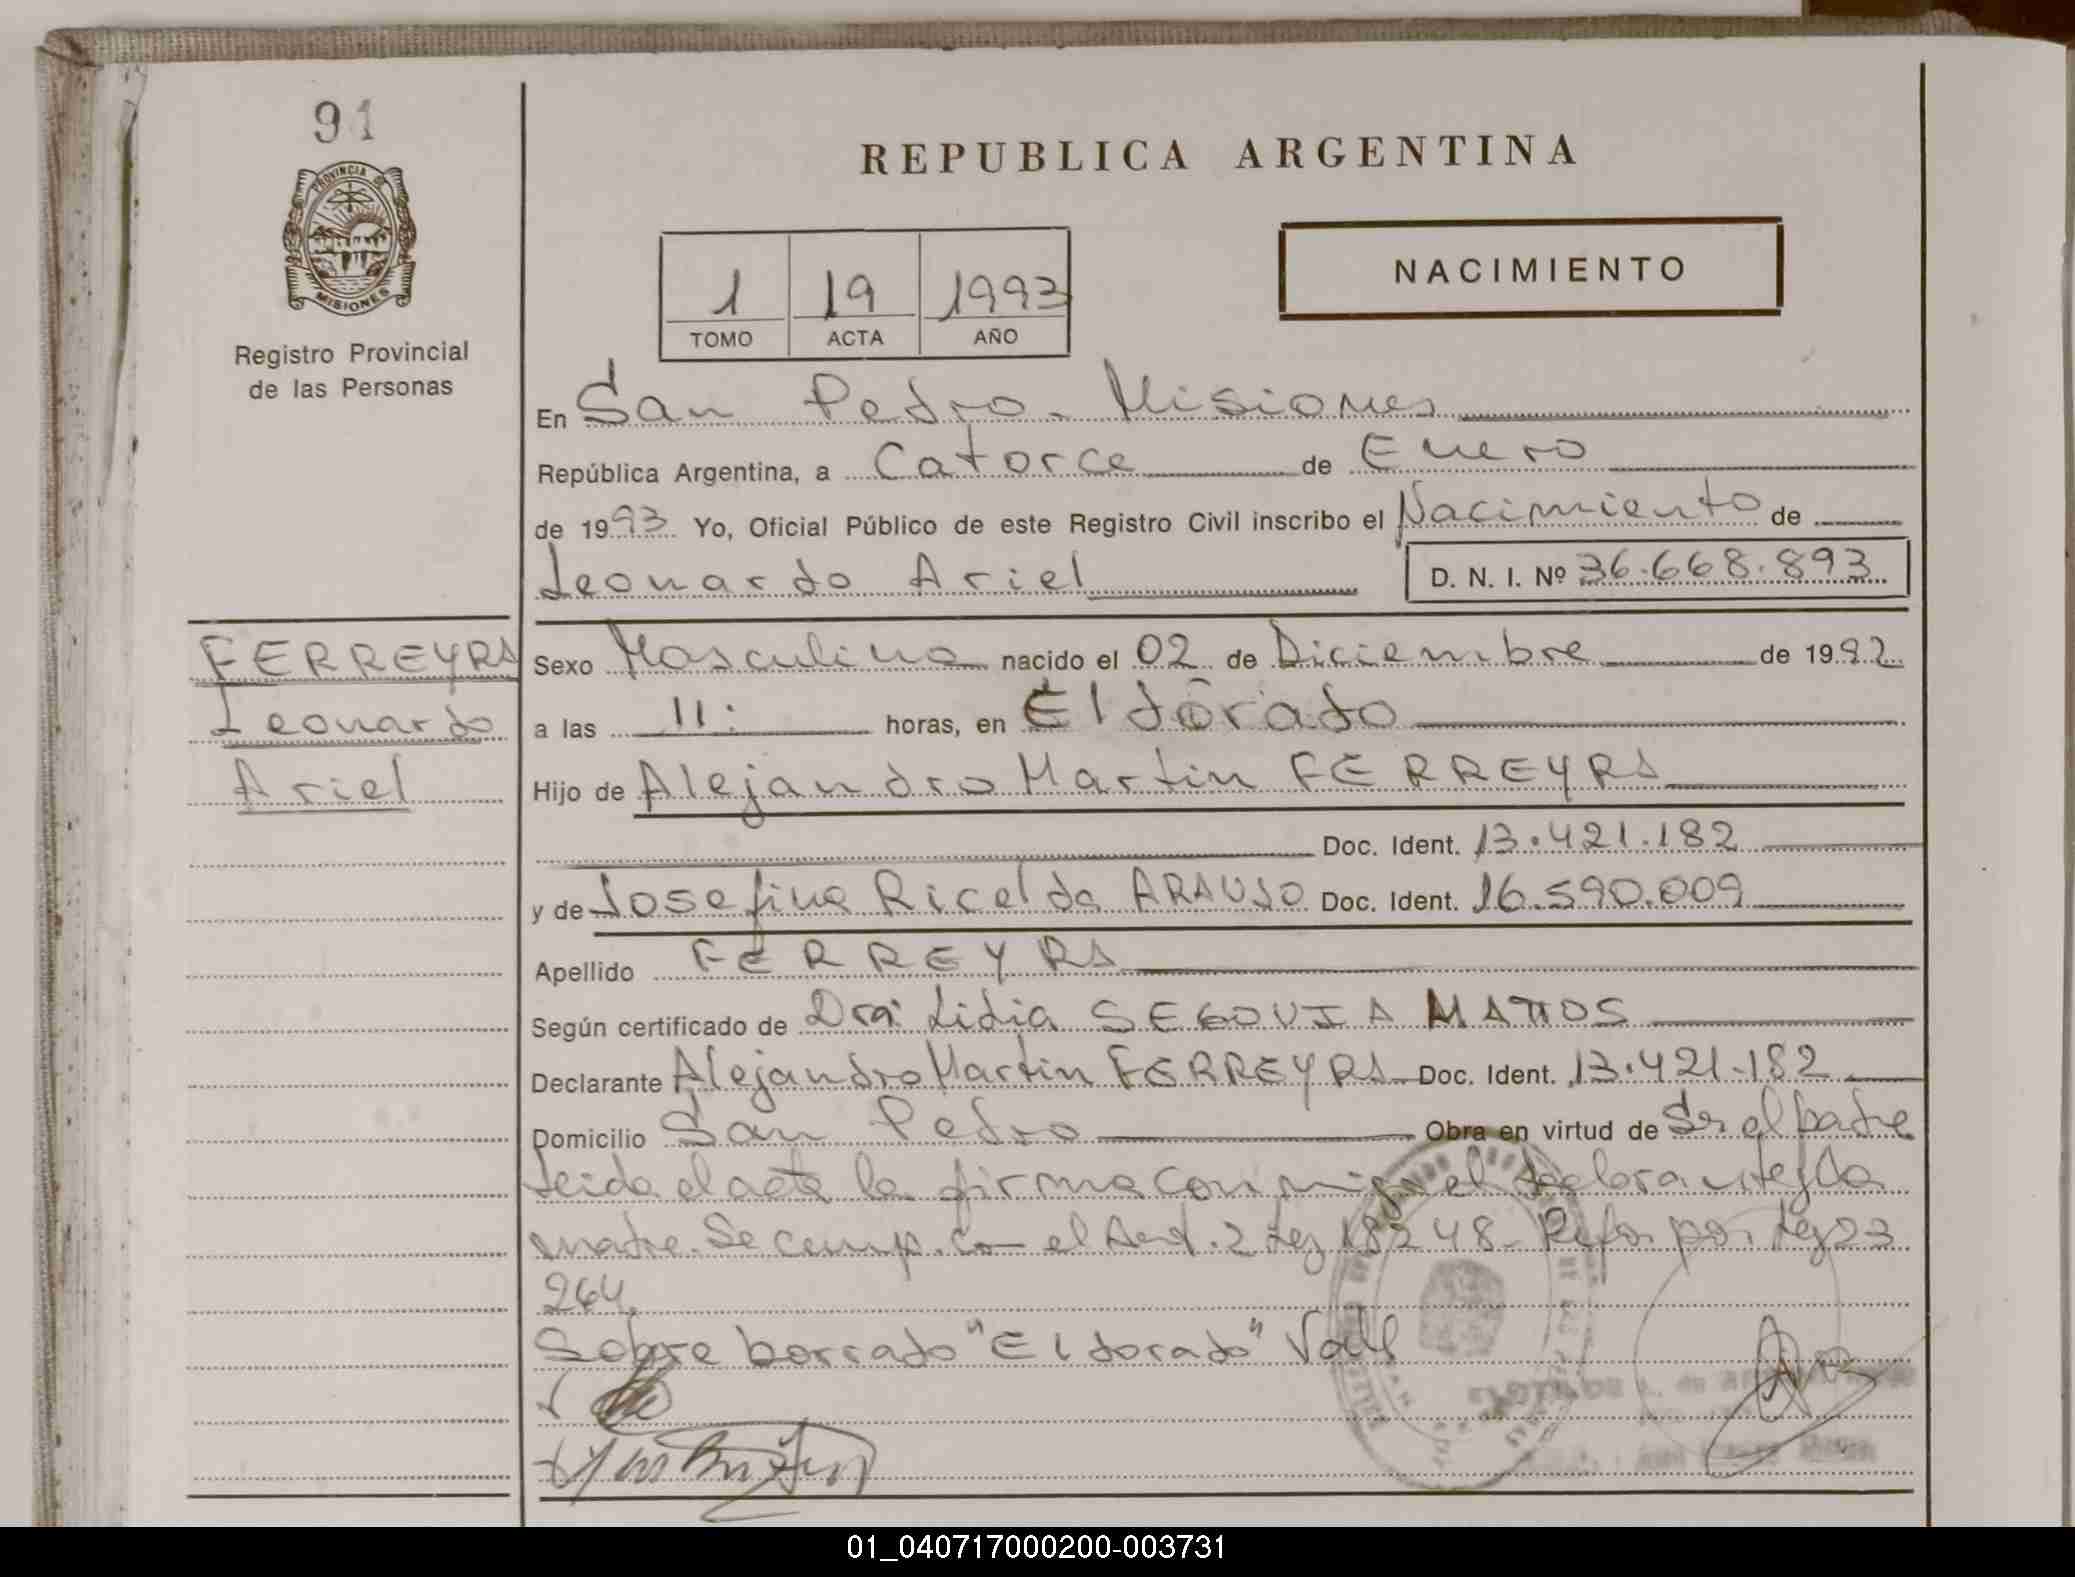 91
PROVINCIA DE
MISIONES
Registro Provincial
de las Personas
REPUBLICA ARGENTINA
NACIMIENTO
1 19 1993
TOMO ACTA AÑO
En San Pedro - Misiones
República Argentina, a Catorce de Enero
de 1993 Yo, Oficial Público de este Registro Civil inscribo el Nacimiento de
Leonardo Ariel D. N. I. Nº 36.668.893
FERREYRA
Leonardo
Ariel
Sexo Masculino nacido el 02 de Diciembre de 1992
a las 11: horas, en Eldorado
Hijo de Alejandro Martin FERREYRA
Doc. Ident. 13.421.182
y de Josefina Ricelda ARAUJO Doc. Ident. 16.590.009
Apellido FERREYRA
Según certificado de Dra. Lidia SEGOVIA MATTOS
Declarante Alejandro Martin FERREYRA Doc. Ident. 13.421.182
Domicilio San Pedro Obra en virtud de Sr el padre
Leida el acta la firma conmigo el declarante y la
madre. Se cump. con el Art. 2 Ley 18248 - Refor por Ley 23
264.
Sobre borrado "Eldorado" Vale
01_040717000200-003731